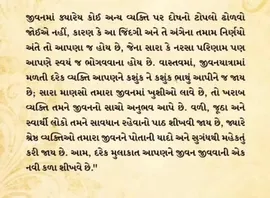 જીવનમાં ક્યારેય કોઈ અન્ય વ્યક્તિ પર દોષનો ટોપલો ઢોળવો
જોઈએ નહીં, કારણ કે આ જિંદગી અને તે અંગેના તમામ નિર્ણયો
અંતે તો આપણા જ હોય છે, જેના સારા કે નરસા પરિણામ પણ
આપણે સ્વયં જ ભોગવવાના હોય છે. વાસ્તવમાં, જીવનયાત્રામાં
મળતી દરેક વ્યક્તિ આપણને કશુંક ને કશુંક ભાથું આપીને જ જાય
છે; સારા માણસો તમારા જીવનમાં ખુશીઓ લાવે છે, તો ખરાબ
વ્યક્તિ તમને જીવનનો સાચો અનુભવ આપે છે. વળી, જૂઠા અને
સ્વાર્થી લોકો તમને સાવધાન રહેવાનો પાઠ શીખવી જાય છે, જ્યારે
શ્રેષ્ઠ વ્યક્તિઓ તમારા જીવનને પોતાની યાદો અને સુગંધથી મહેકતું
કરી જાય છે. આમ, દરેક મુલાકાત આપણને જીવન જીવવાની એક
નવી કળા શીખવે છે."